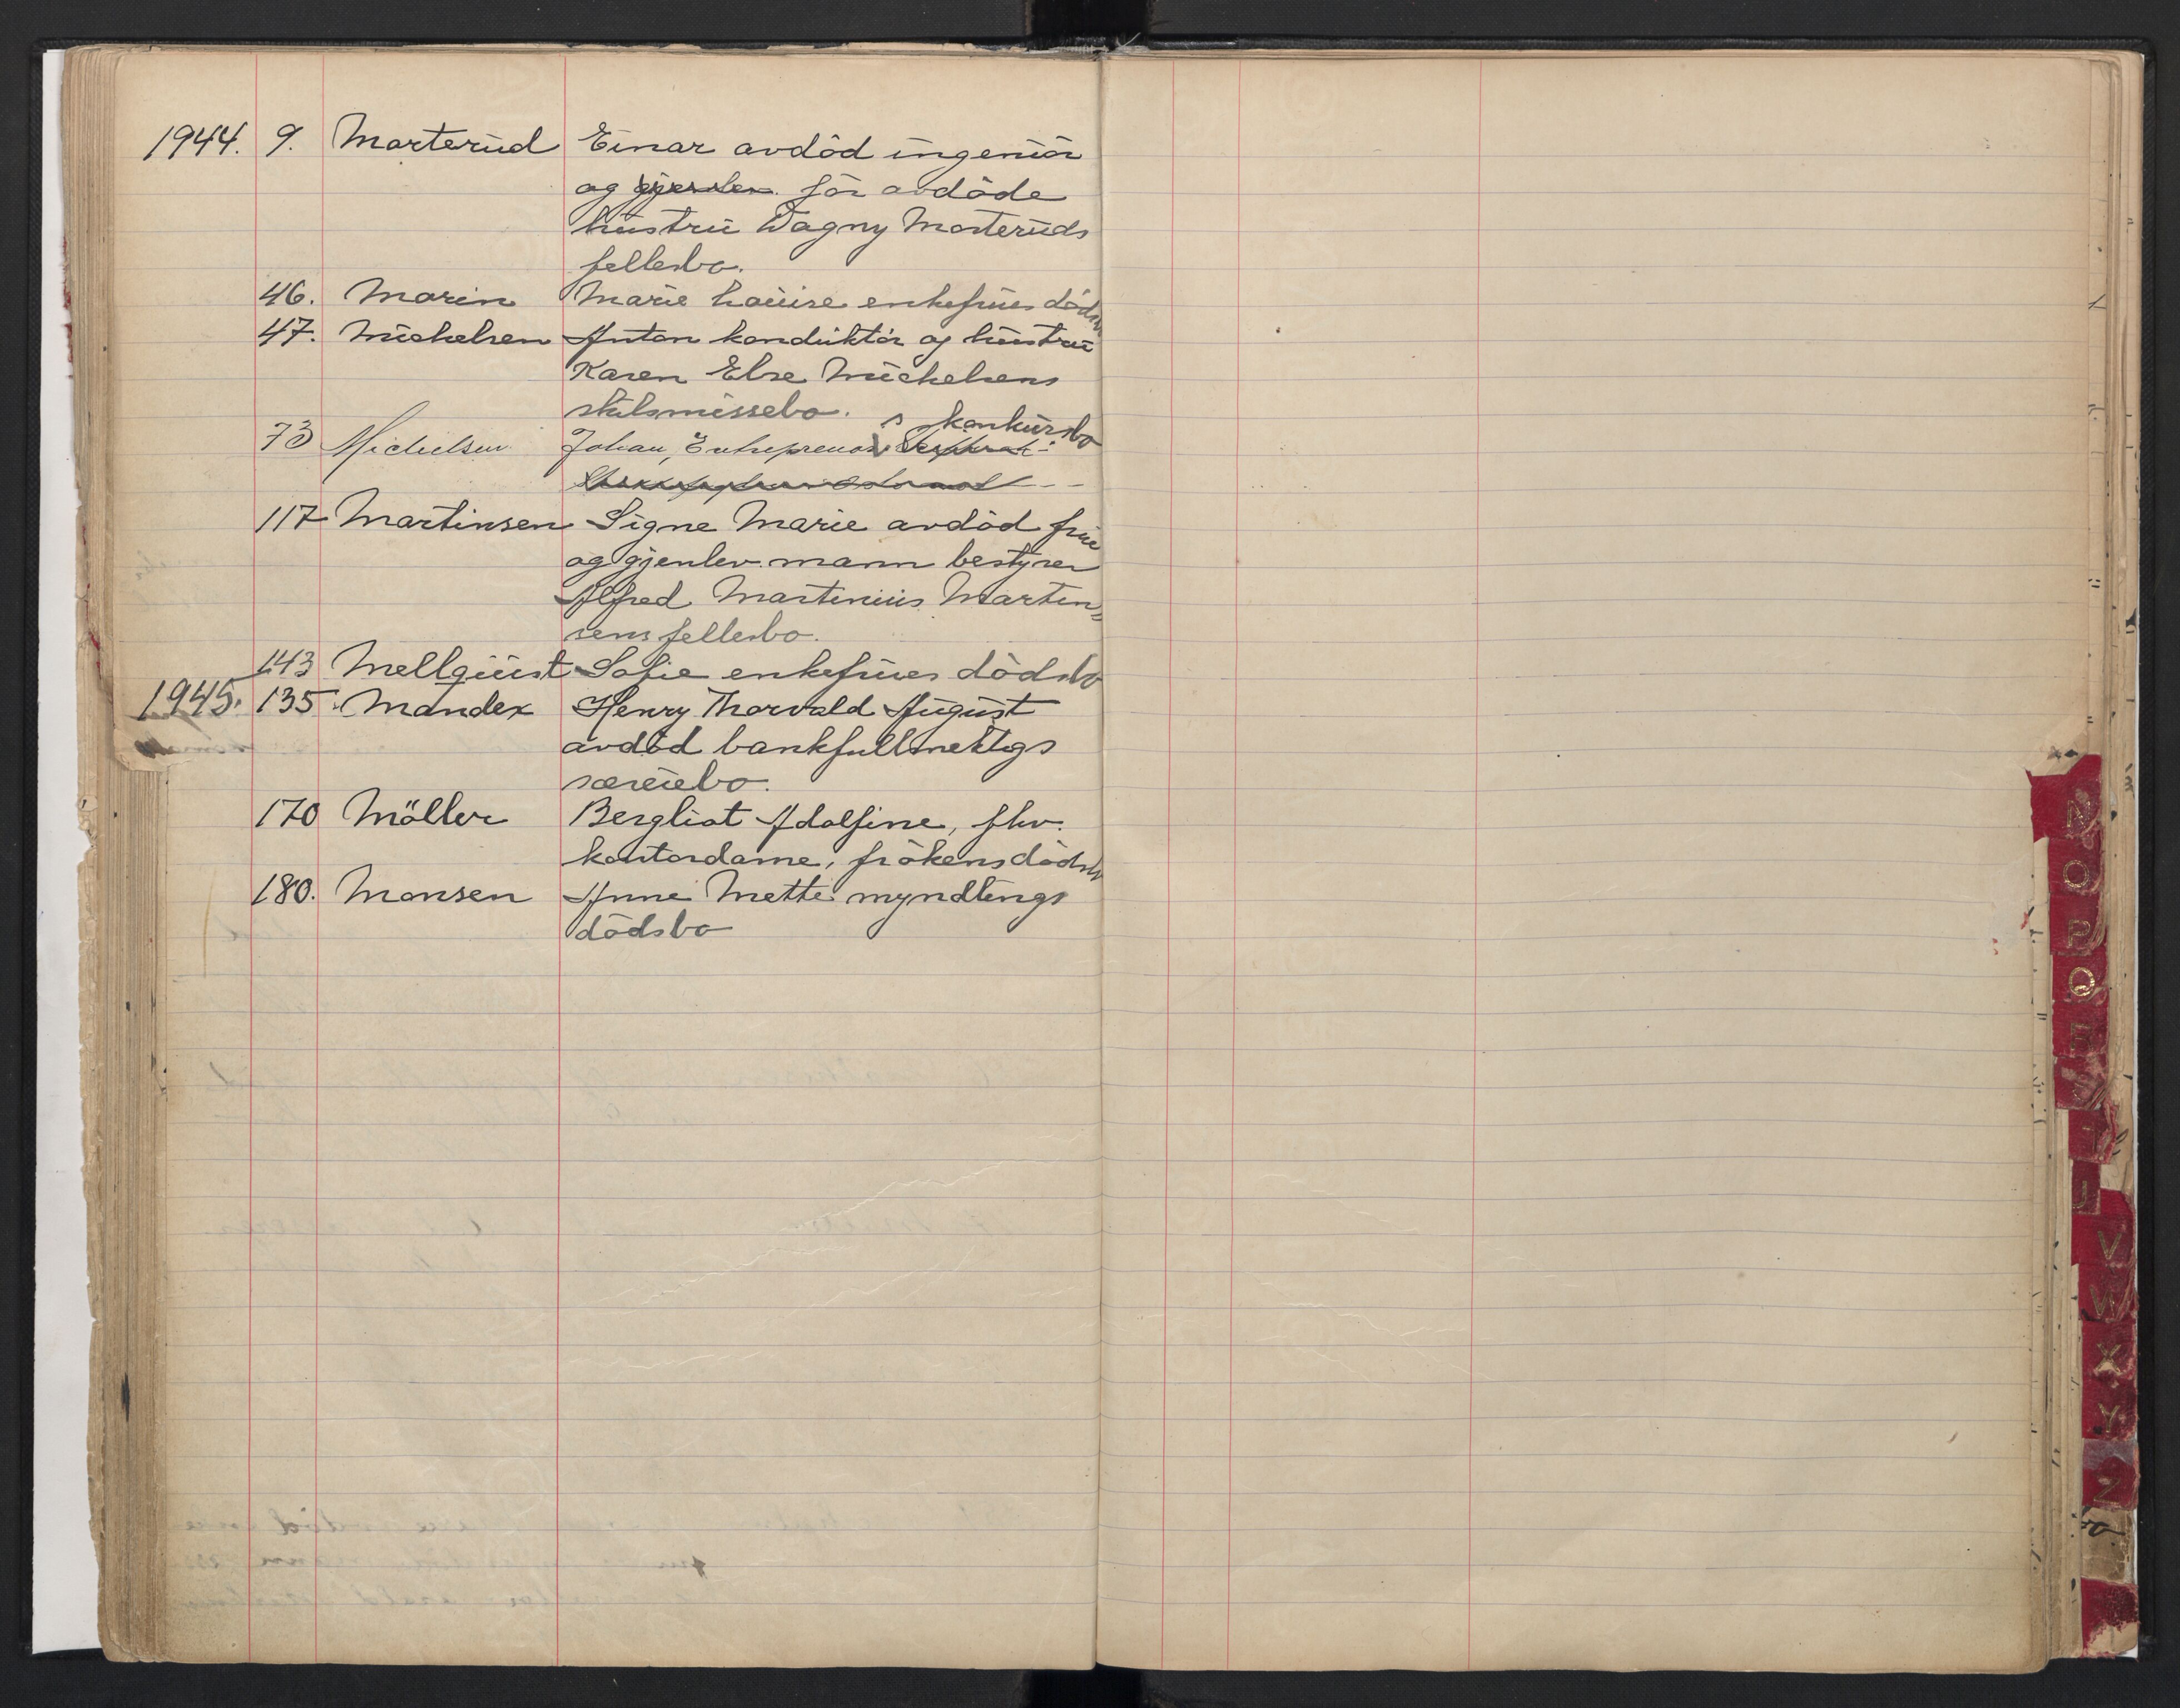 1944. 9. Marterud Einar avdöd ingeniör
og gjenlev. för avdöde
hustru Dagny Marteruds
fellesbo.
46. Marin Marie Louise enkefrues dödsbo
47. Michelsen Anton konduktör og hustru
Karen Else Michelsens
skilsmissebo.
73 Michelsen Johan, Entreprenör s konkursbo
117 Martinsen Signe Marie avdöd frue
og gjenlev. mann bestyrer
Alfred Martinius Martin=
sens fellesbo.
143 Mellquist Sofie enkefrues dödsbo
1945. 135 Mander Henry Thorvald August
avdöd bankfullmektigs
særeiebo.
170 Möller Bergliot Adolfine, fhv.
kontordame, frökens dödsbo
180. Monsen Anne Mette myndlings
dödsbo
N
O
P
Q
R
S
T
U
V
W
X
Y
Z